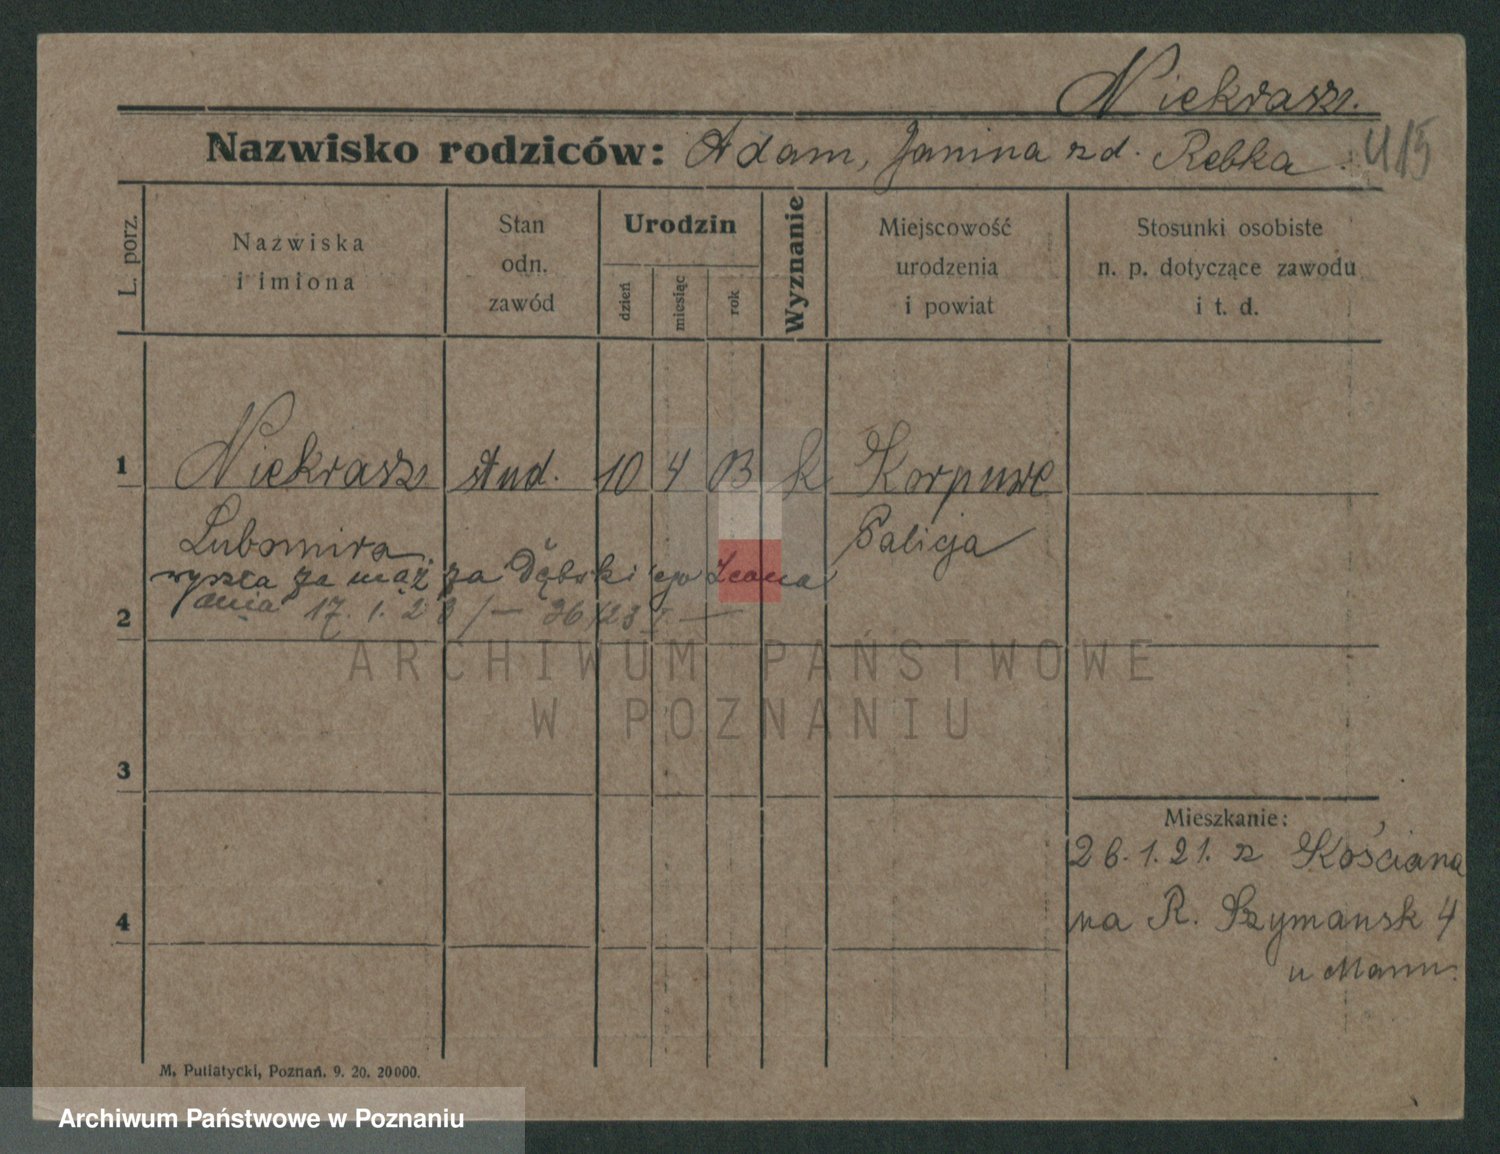 Niekrasz.
Nazwisko rodziców: Adam, Janina zd. Rebka
415
L. porz.
Nazwiska
i imiona
Stan
odn.
zawód
Urodzin
dzień
miesiąc
rok
Wyznanie
Miejscowość
urodzenia
i powiat
Stosunki osobiste
n. p. dotyczące zawodu
i t. d.
1 Niekrasz stud. 10 4 03 k
Lubomira Galicja
wyszła za mąż za Dębskiego Leona
dnia 17. 1. 23 / — 36/23 I —
2
ARCHIWUM PAŃSTWOWE
W POZNANIU
3
Mieszkanie:
26.1.21. z Kościana
4
na R. Szymansk 4
u Mann.
M. Putiatycki, Poznań. 9. 20. 20000.
Archiwum Państwowe w Poznaniu